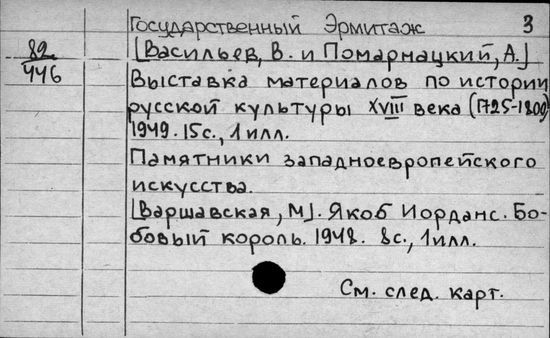 Государственный Эрмитаж 3
82/446
[Васильев, В. и Помармацкий, А.]
Выставка материалов по истории
русской культуры XVIII века (1725-1800)
1949. 15 с., 1 илл.
Памятники западноевропейского
искусства.
[Варшавская, М]. Якоб Иорданс. Бо-
бовый король. 1948. 8 с., 1 илл.
См. след. карт.